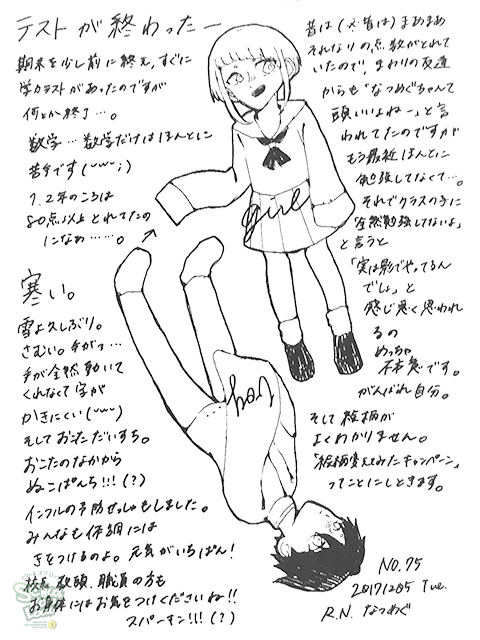 テストが終わったー
期末を少し前に終え、すぐに
学力テストがあったのですが
何とか終了…。
数学…数学だけはほんとに
苦手です(˘ω˘;)
1、2年のころは
80点以上とれてたの
になぁ……。
寒い。
雪よ久しぶり。
さむい。手がっ…
手が全然動いて
くれなくて字が
かきにくい(˘ω˘)
そしておこただいすち。
おこたのなかから
ぬこぱんち!!!(?)
インフルの予防せっしゅもしました。
みんなも体調には
きをつけるのよ。元気がいちばん!
校長、教頭、職員の方も
お身体にはお気をつけくださいね!!
スパーキン!!!(?)
girl
boy
昔は(※昔は)まあまあ
それなりの点数がとれて
いたので、まわりの友達
からも「なつめぐちゃんて
頭いいよねー」と言
われてたのですが
もう最近ほんとに
勉強してなくて…。
それでクラスの子に
「全然勉強してないよ」
と言うと
「実は影でやってるん
でしょ」と
感じ悪く思われ
るの
めっちゃ
不本意です。
がんばれ自分。
そして絵柄が
よくわかりません。
「絵柄変えてみたキャンペーン」
ってことにしときます。
NO.75
20171205 Tue.
R.N. なつめぐ